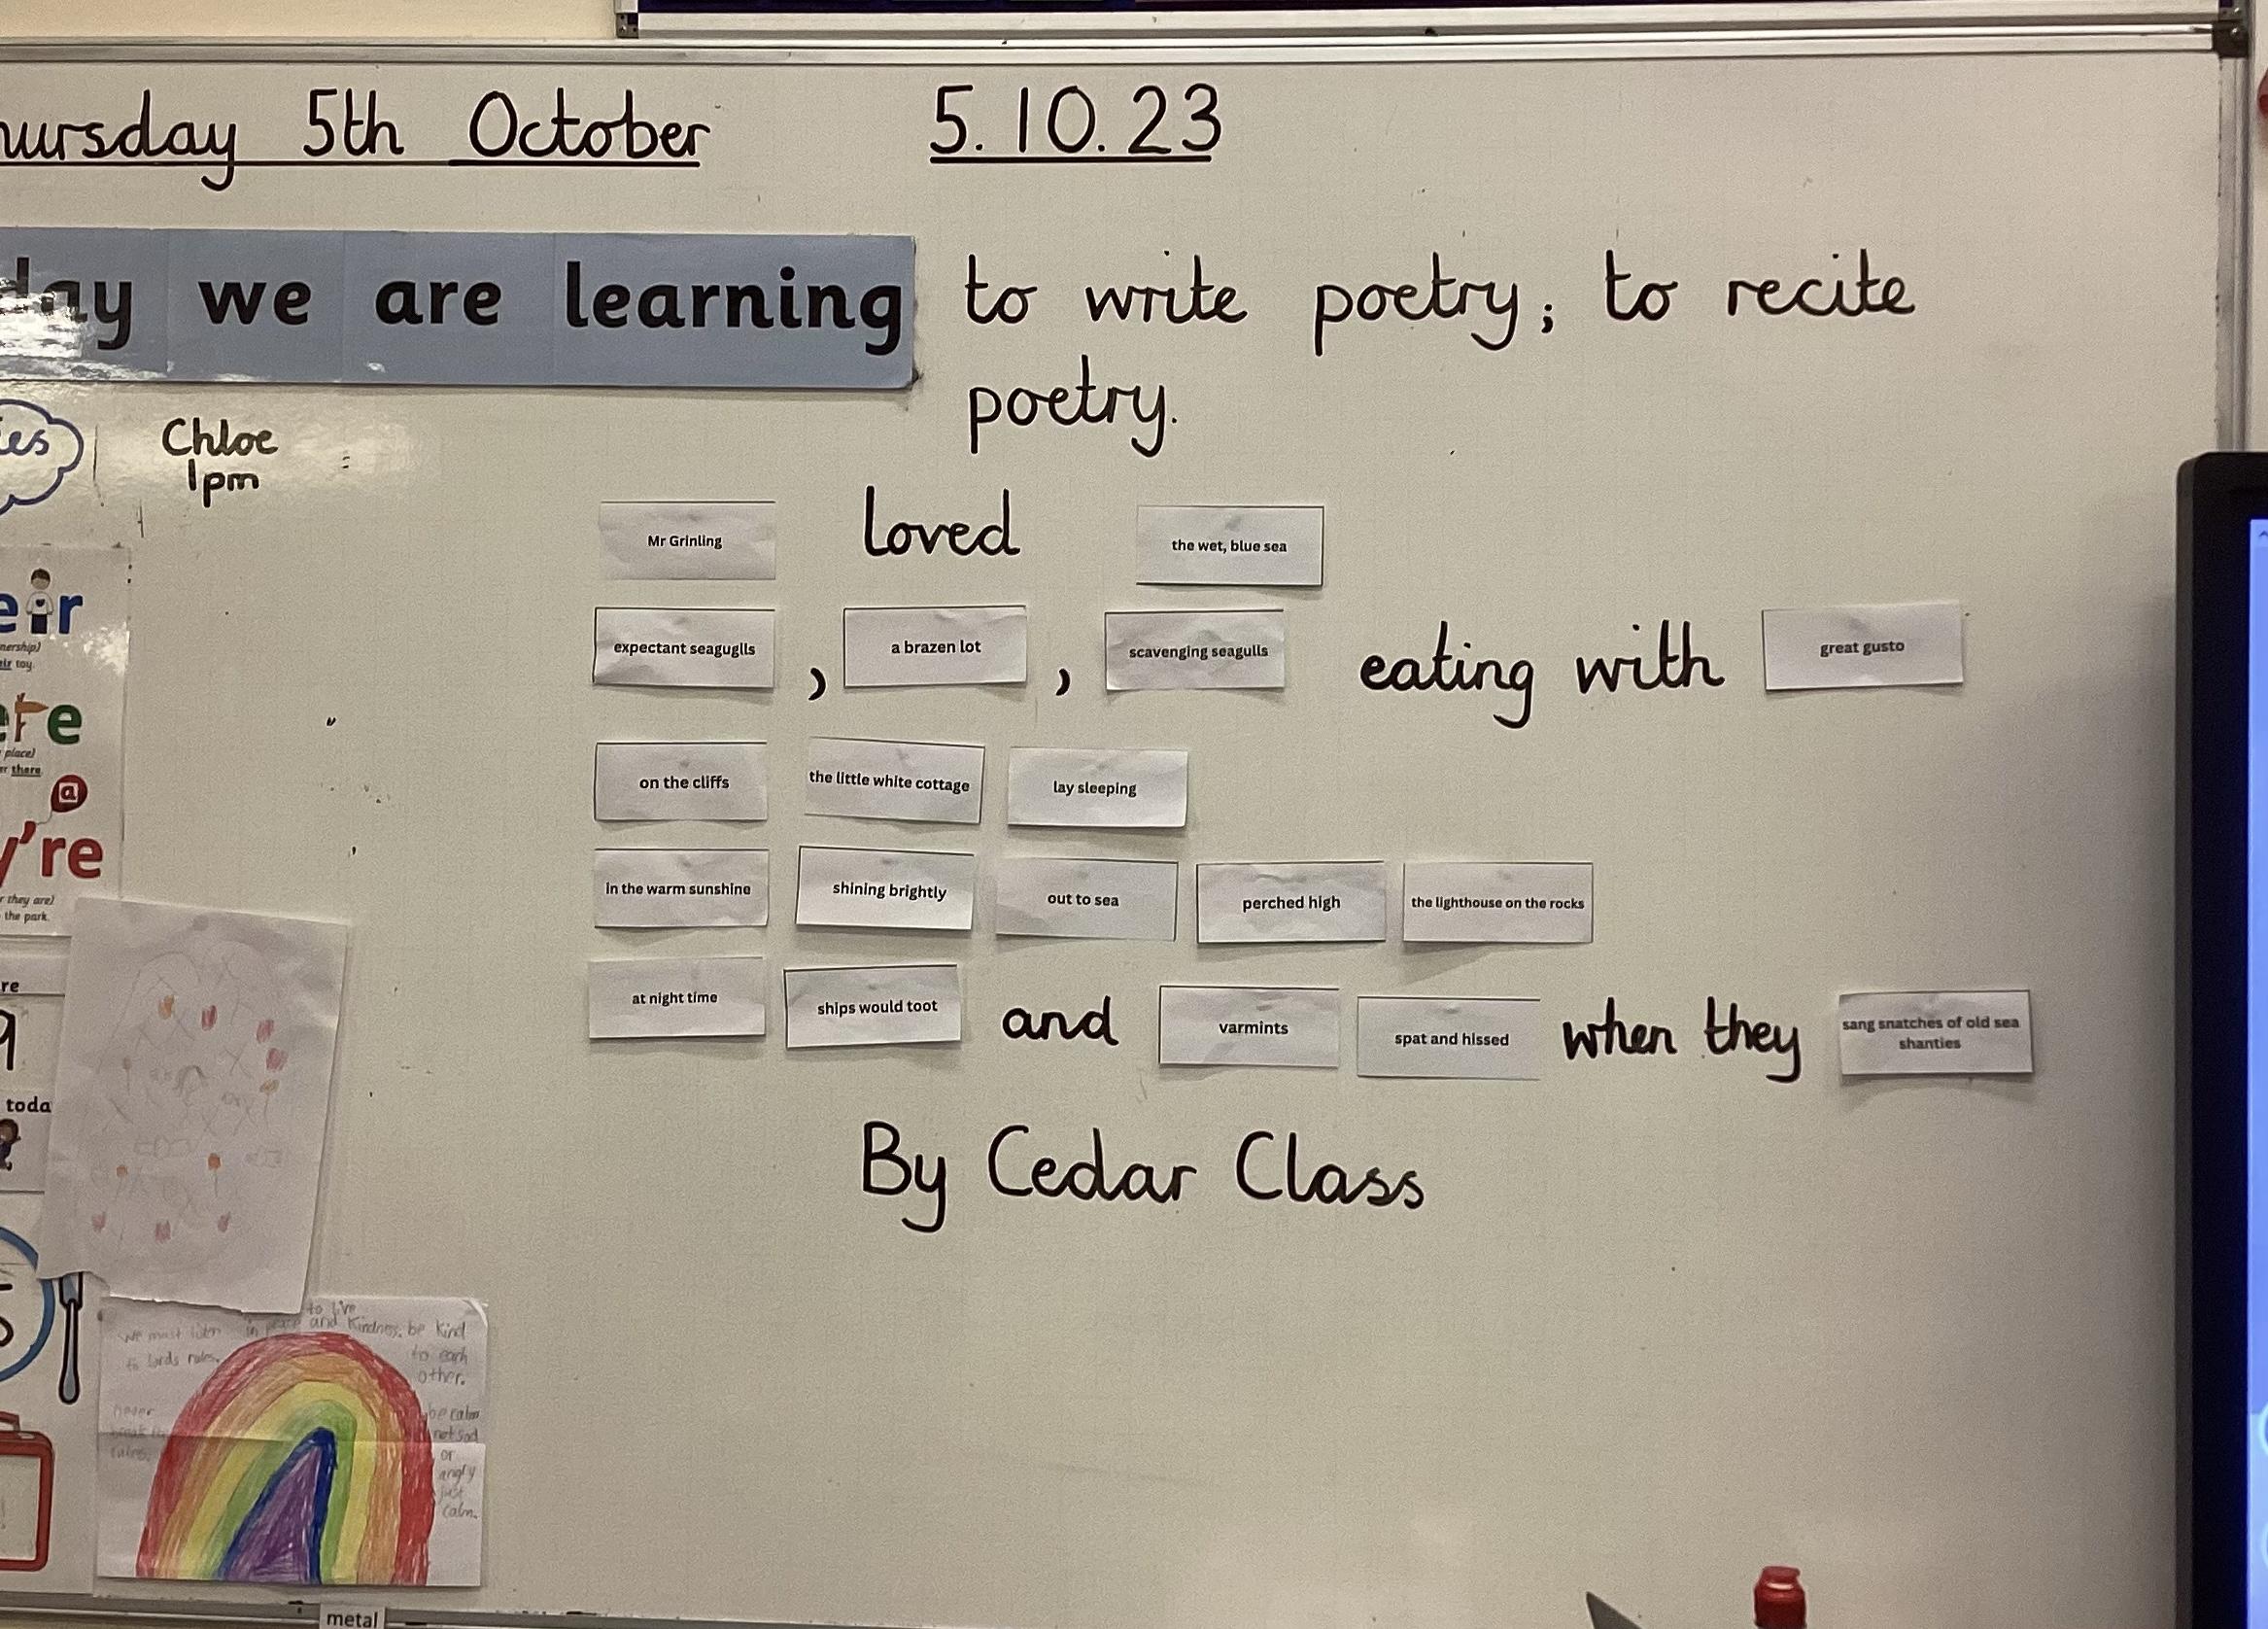 hursday 5th October 5.10.23
day we are learning to write poetry; to recite
poetry.
ies
Chloe
1pm
Mr Grinling loved the wet, blue sea
expectant seaguglls , a brazen lot , scavenging seagulls eating with great gusto
on the cliffs the little white cottage lay sleeping
in the warm sunshine shining brightly out to sea perched high the lighthouse on the rocks
at night time ships would toot and varmints spat and hissed when they sang snatches of old sea
shanties
By Cedar Class
eir
nership)
eir toy.
ere
place)
er there.
y're
r they are)
the park.
re
9
toda
5
to live
we must listen in peace and kindness. be kind
to lords rules. to each
other.
never be calm
break not sad
rules. or
angry
just
calm.
metal